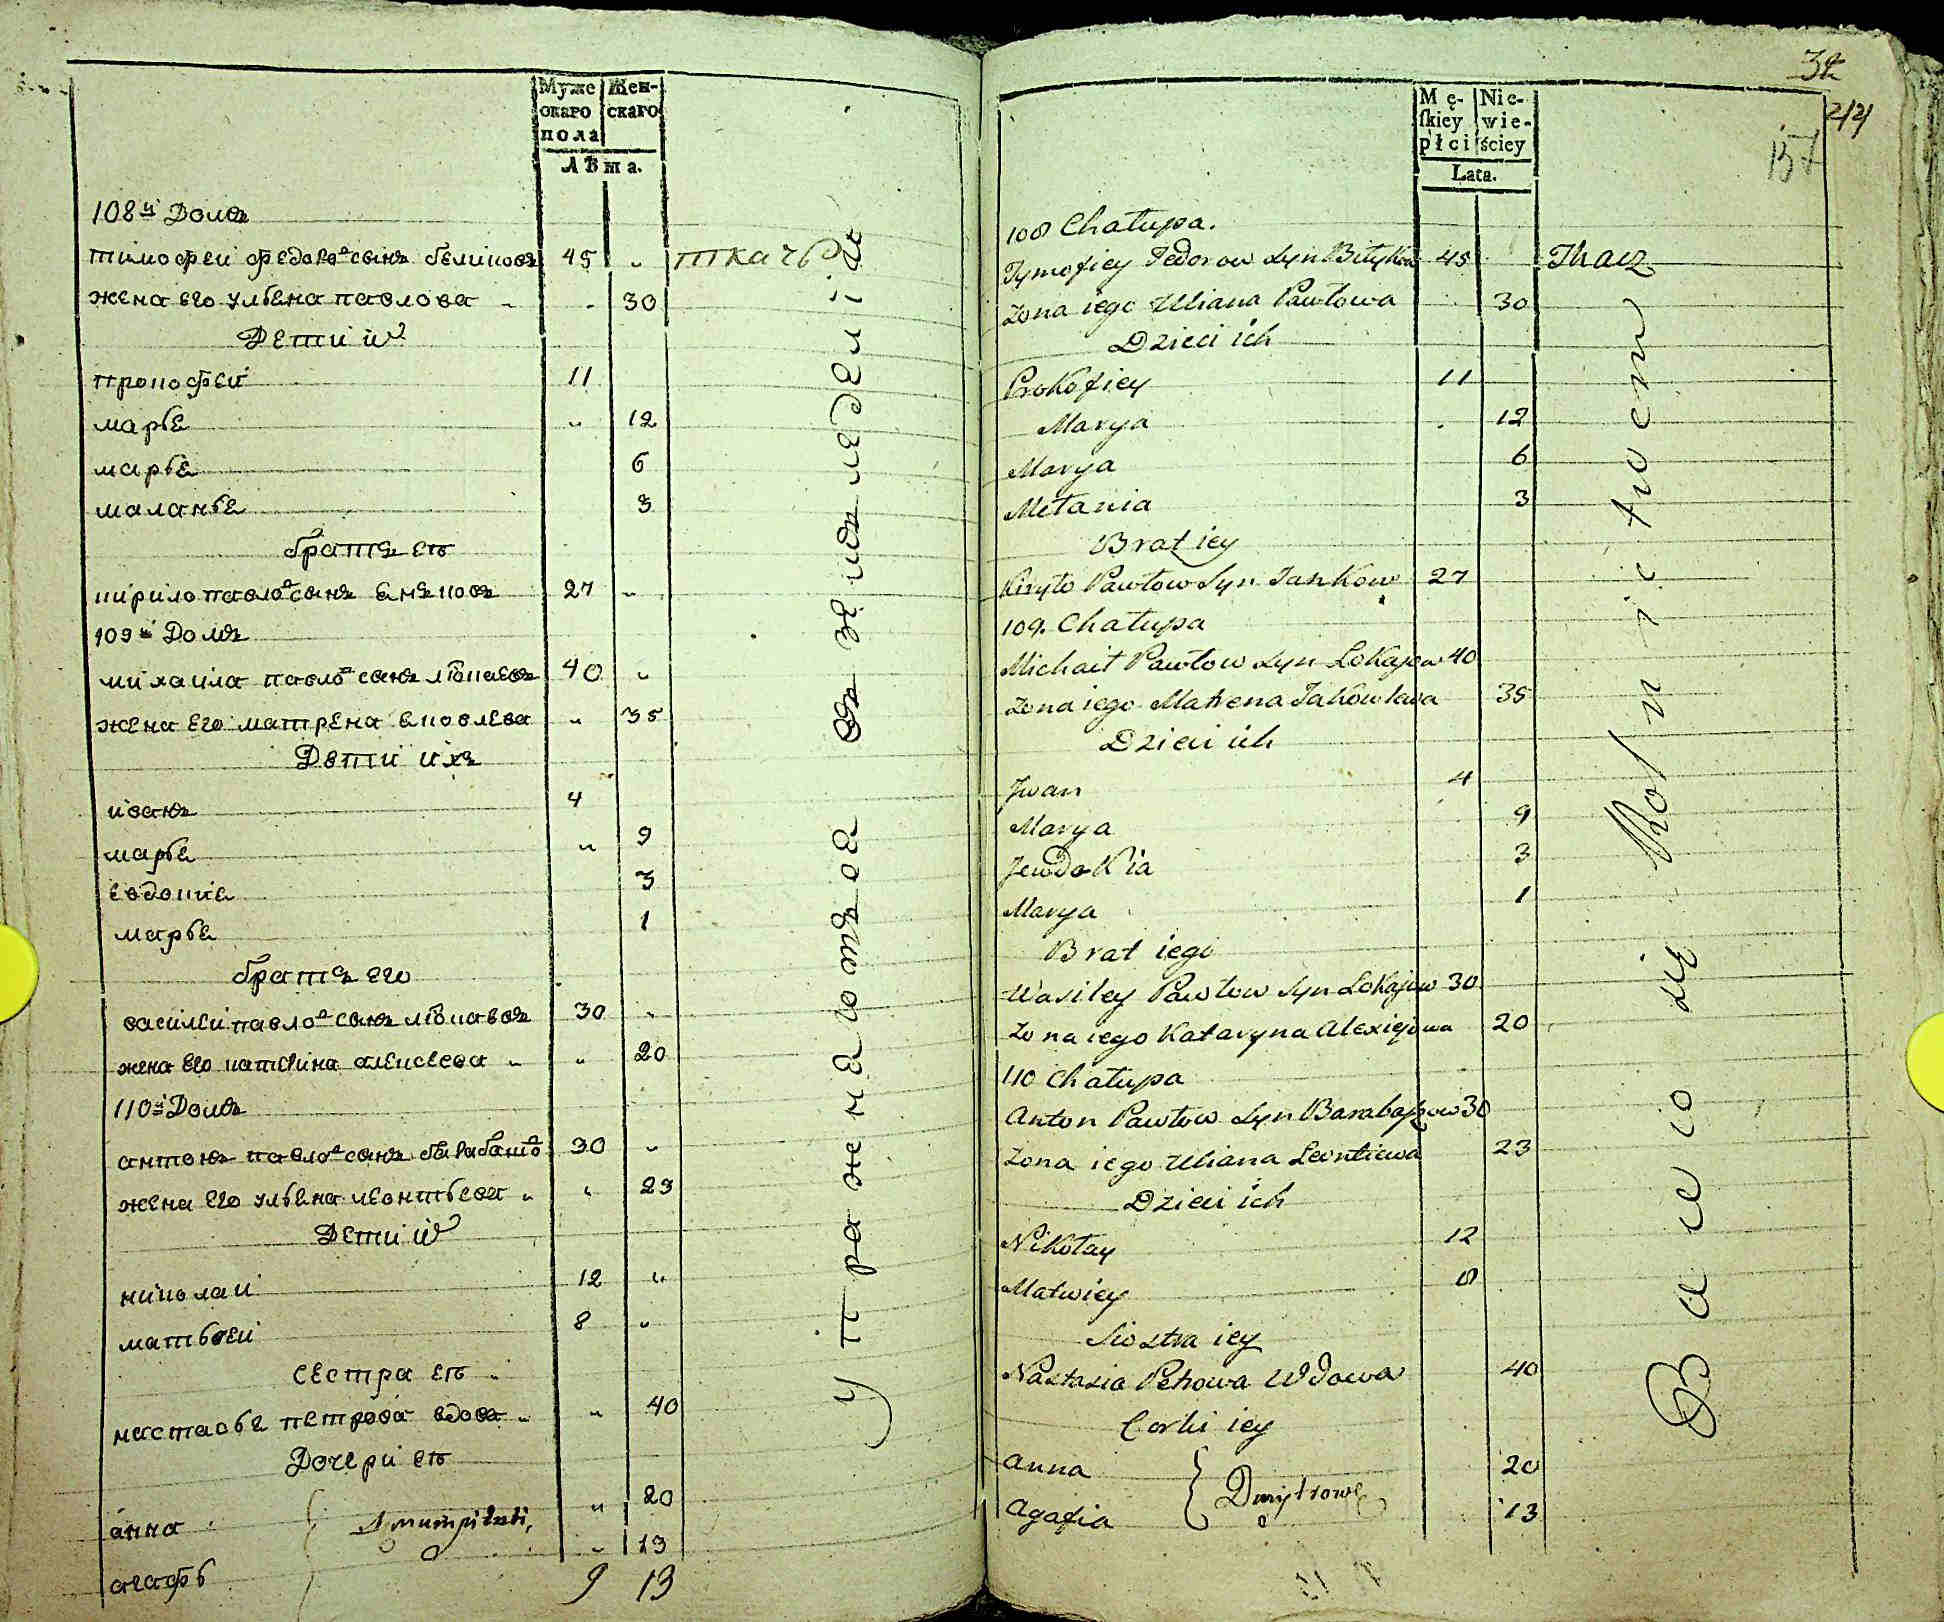 Муже скаго пола
Жен-скаго
Лѣта.
108й Домъ
тимофеи федоровъ сынъ 45 ткачь
жена его ульяна павлова 30
Дети их
прокофеи 11
марья 12
марья 6
маланья 3
братъ ея
кирило павловъ сынъ янковъ 27
109й Домъ
михаила павловъ сынъ 40
жена его матрена яковлева 35
Дети ихъ
иванъ 4
марья 9
евдокия 3
марья 1
братъ его
василеи павловъ сынъ 30
жена его катерина алексеева 20
110й Домъ
антонъ павловъ сынъ 30
жена его ульяна леонтьева 23
Дети их
николаи 12
матвеи 8
сестра ея
настасья петрова вдова 40
Дочери ея
анна 20
агафья 13
9 13
упражняются въ земледелии
34
157
Mę-skiey płci
Nie-wie-ściey
Lata.
108 Chałupa.
Tymofiey Fedorow Syn 45 Tkacz
Zona iego Uliana Pawłowa 30
Dzieci ich
Prokofiey 11
Marya 12
Marya 6
Mełania 3
Brat iey
Kiryło Pawłow Syn Jankow 27
109. Chałupa
Michaił Pawłow Syn Łokajow 40
Zona iego Matrena Jakowlewa 35
Dzieci ich
Jwan 4
Marya 9
Jewdokia 3
Marya 1
Brat iego
Wasiley Pawłow Syn Łokajow 30
Zona iego Kataryna Alexiejowa 20
110 Chałupa
Anton Pawłow Syn Barabaszow 30
Zona iego Uliana Leontiewa 23
Dzieci ich
Nikołay 12
Matwiey 8
Siostra iey
Nastasia Petrowa Wdowa 40
Corki iey
Anna 20
Agafia 13
Dmytrowe
Bawią się Rolnictwem